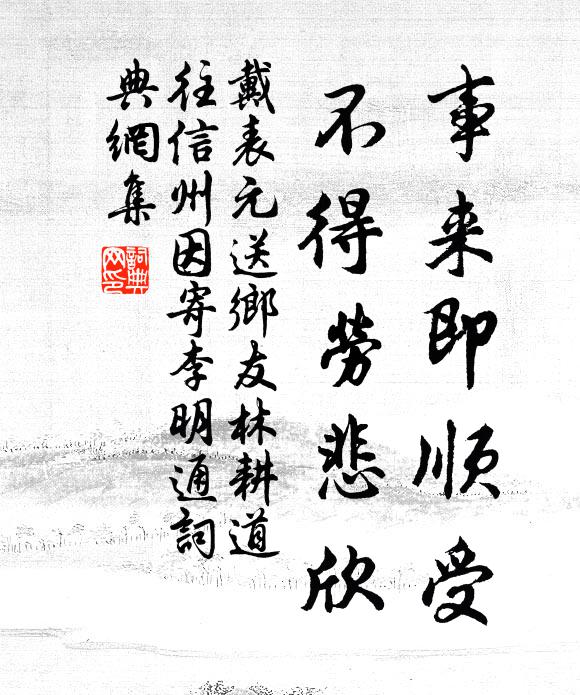 事来即順受
不得勞悲欣
戴表元送鄉友林耕道
往信州因寄李明通詞
典網集
詞典
网印